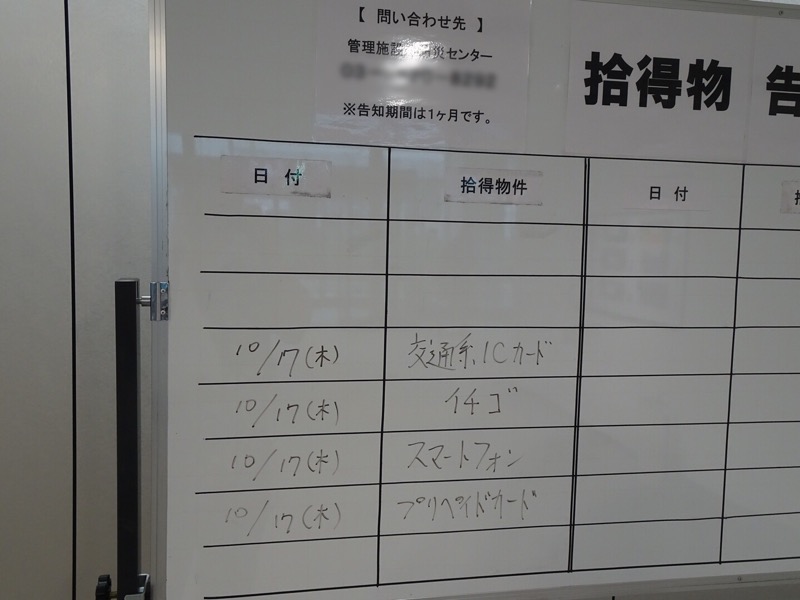 【 問い合わせ先 】
管理施設 災センター
※告知期間は1ヶ月です。
拾得物 告
日 付 拾得物件 日 付
10/17(木) 交通系ICカード
10/17(木) イチゴ
10/17(木) スマートフォン
10/17(木) プリペイドカード